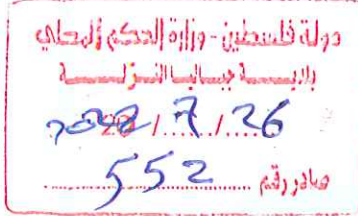 دولة فلسطين - وزارة الحكم المحلي
بلديــــة جباليا النــزلــــة
2022/7/26
صادر رقم 552